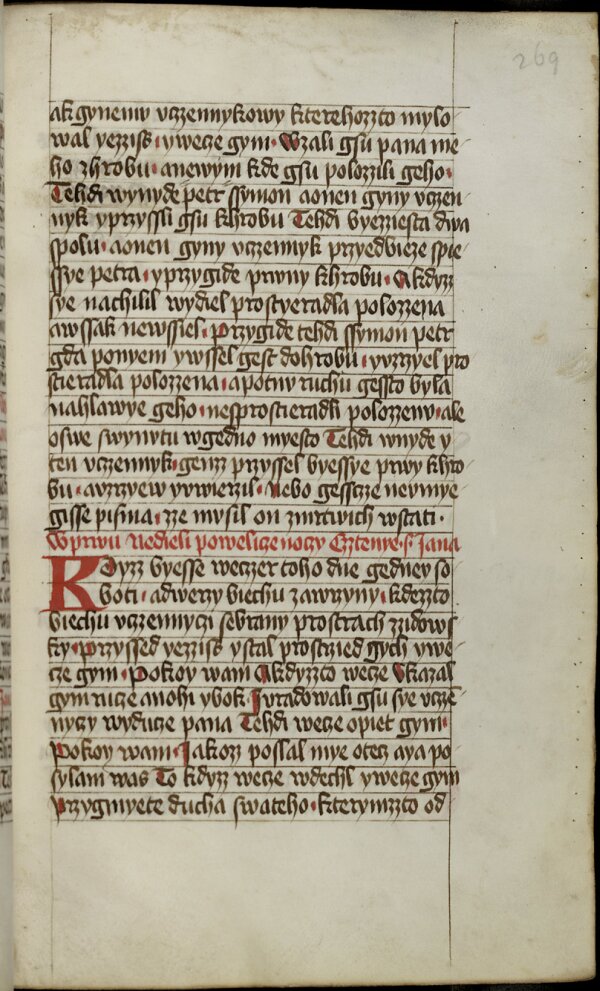 269
ak gynemu vczennykowy kterehozzto mylo
wal yezziss ⸱ y wecze gym ⸱ Wzali gsu pana me
ho zhrobu ⸱ anewym kde gsu polozzili geho ⸱
Tehdi wynyde petr ssymon aonen gyny vczen
nyk yprzyssli gsu khrobu Tehdi byezziesta dwa
spolu ⸱ aonen gyny vczennyk przyedbieze spie
ssye petra ⸱ yprzygide prwny khrobu ⸱ Akdyz
sye nachilil wydiel prostyeradla polozzena
awssak newssiel ⸱ przygide tehdi ssymon petr
gda ponyem ywssel gest dohrobu ⸱ yvzrzyel pro
stieradla polozzena ⸱ apotny ruchu gessto byla
nahlawye geho ⸱ nesprostieradli polozzenu ⸱ ale
oswe swynutu wgedno myesto Tehdi wnyde y
ten vczennyk ⸱ genz przyssel byessye prwy khro
bu ⸱ avzrzyew yvwierzil ⸱ Nebo gesscze neymye
gisse pisma ⸱ ze musil on zmrtwich wstati ⸱
Wprwu Nedieli powelicze noczy Cztenye ⸱ s ⸱ Jana
KDyzz byesse weczer toho dne gedney so
boti ⸱ adwerzy biechu zawrzyny ⸱ kdezzto
biechu vczennyczi sebrany prostrach zzidows
ky ⸱ przyssed yezziss ystal prostrzied gych ywe
cze gym ⸱ Pokoy wam Akdyzzto wecze Vkazal
gym rucze anohi ybok ⸱ Jvradowali gsu sye vcze̅
nyczy wyducze pana Tehdi wecze opiet gym ⸱
Pokoy wam ⸱ Jakozz poslal mye otecz aya po
sylam was To kdyzz wecze wdechl ywecze gym
Przygmyete ducha swateho ⸱ kterymzzto od